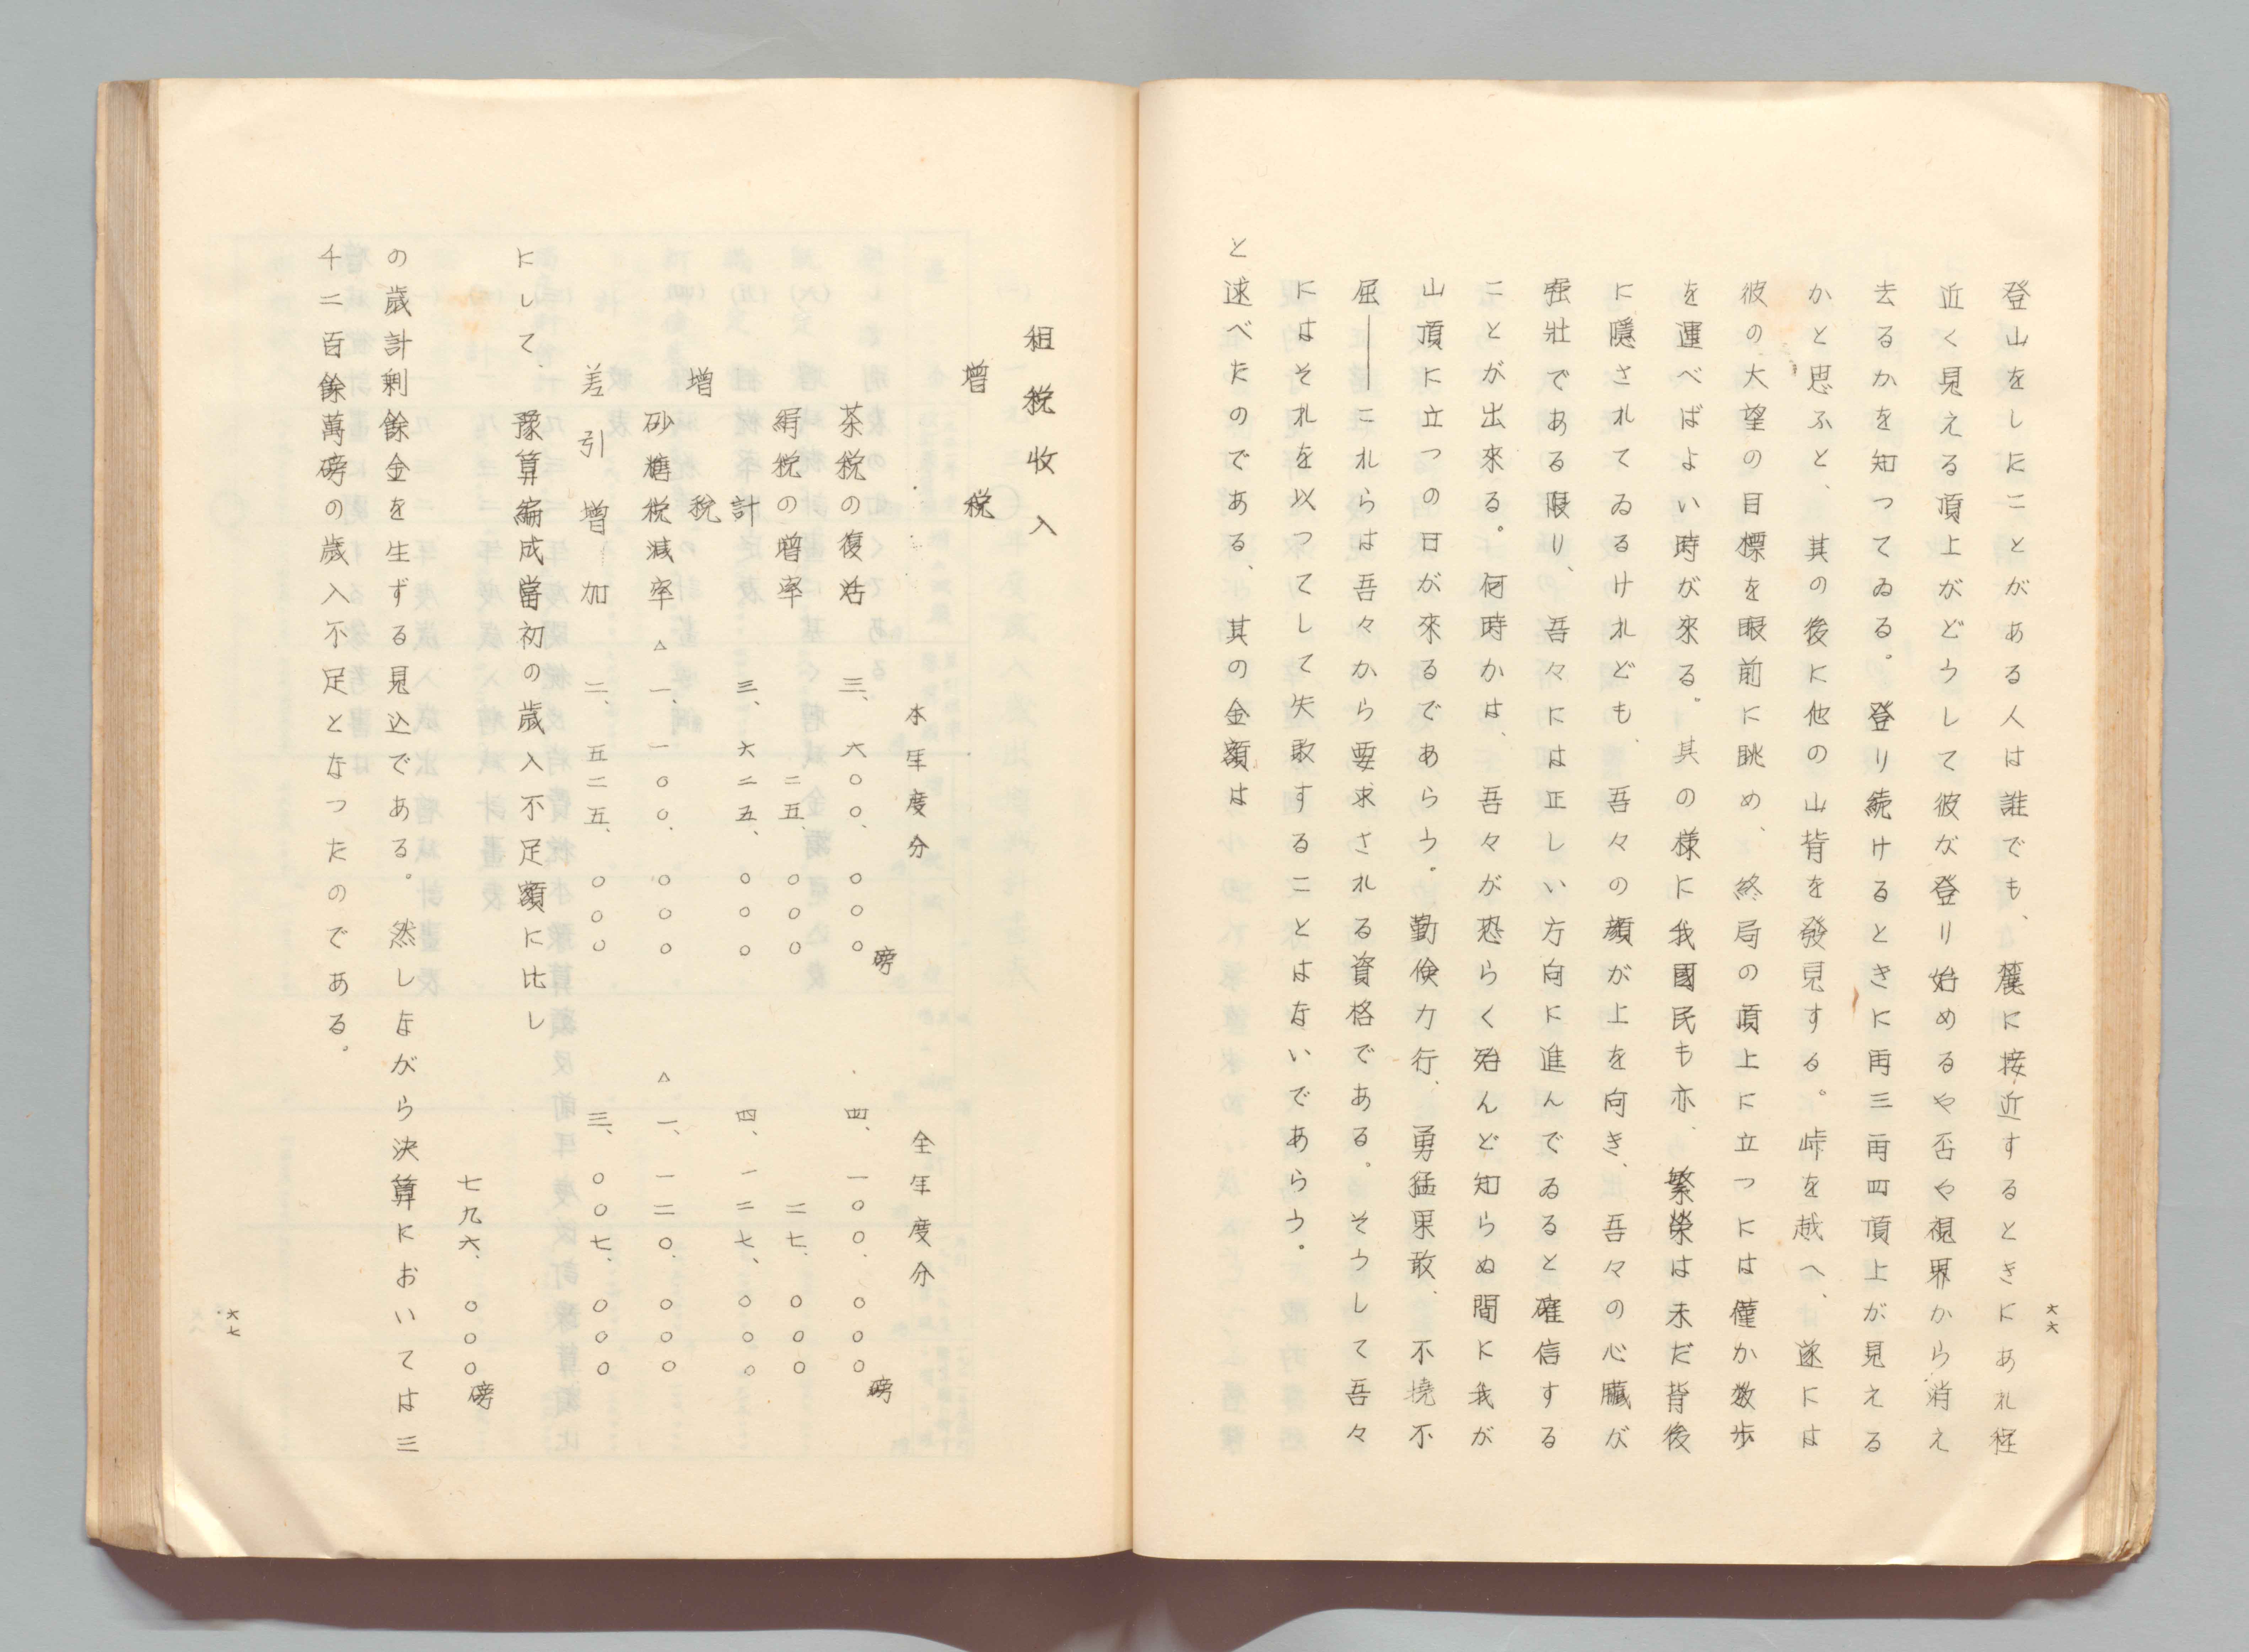 六六
登山をしにことがある人は誰でも、麓に接近するときにあれ程
近く見える頂上がどうして彼が登り始めるや否や視界から消え
去るかを知つてゐる。登り続けるときに再三再四頂上が見える
かと思ふと、其の後に他の山背を發見する。峠を越へ、遂には
彼の大望の目標を眼前に眺め、終局の頂上に立つには僅か数歩
を運べばよい時が來る。其の様に我國民も亦、繁榮は未だ背後
に隱されてゐるけれども、吾々の顔が上を向き、吾々の心臓が
强壯である限り、吾々には正しい方向に進んでゐると確信する
ことが出來る。何時かは、吾々が恐らく殆んど知らぬ間に我が
山頂に立つの日が來るであらう。勤倹力行、勇猛果敢、不撓不
屈――これらは吾々から要求される資格である。そうして吾々
にはそれを以つてして失敗することはないであらう。
と述べたのである、其の金額は
租税收入
増税
本年度分 全年度分
茶税の復活 三、六〇〇、〇〇〇磅 四、一〇〇、〇〇〇磅
絹税の増率 二五、〇〇〇 二七、〇〇〇
計 三、六二五、〇〇〇 四、一二七、〇〇〇
増税
砂糖税減率 △一、一〇〇、〇〇〇 △一、一二〇、〇〇〇
差引増加 二、五二五、〇〇〇 三、〇〇七、〇〇〇
にして、豫算編成當初の歳入不足額に比し
七九六、〇〇〇磅
の歳計剰餘金を生ずる見込である。然しながら決算においては三
千二百餘萬磅の歳入不足となつたのである。
六七